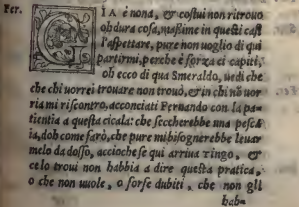 Fer.
GIA è nona, & costui non ritrouo
oh dura cosa, maßime in questi casi
l'aspettare, pure non uoglio di qui
partirmi, perche è forza ci capiti,
oh ecco di qua Smeraldo, uedi che
che chi uorrei trouare non trouò, & in chi nõ uor
ria mi riscontro, acconciati Fernando con la pa-
tientia a questa cicala: che seccherebbe una pesca
ia, doh come farò, che pure mi bisognerebbe leuar
melo da dosso, accioche se qui arriua Tingo, &
celo troui non habbia a dire questa pratica,
o che non uuole, o forse dubiti, che non gli
hab=